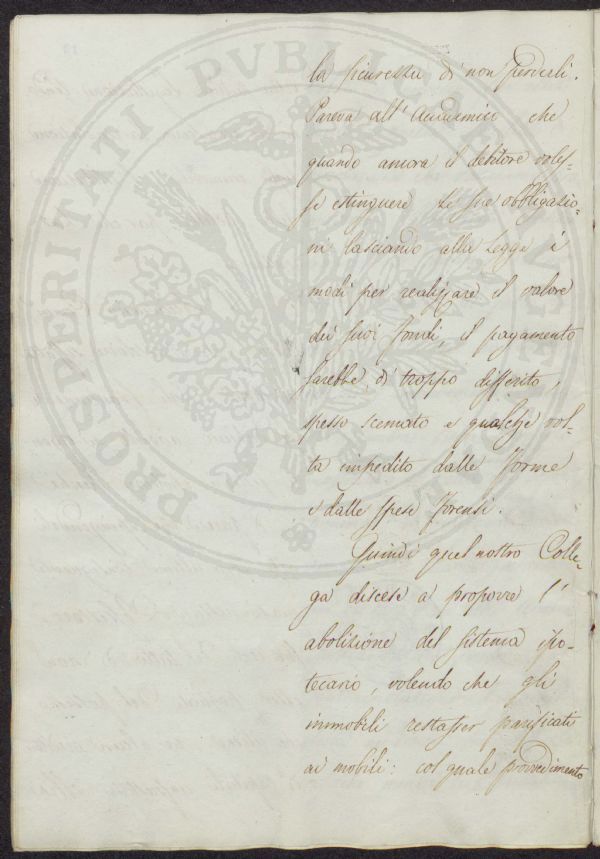 la sicurezza di non perderli.
Pareva all'Accademico che
quando ancora il debitore voles-
se estinguere le sue obbligazio-
ni lasciando alla Legge i
modi per realizzare il valore
dei suoi fondi, il pagamento
sarebbe di troppo differito,
spesso scemato e qualche vol-
ta impedito dalle forme
e dalle spese forensi.
Quindi quel nostro Colle-
ga discese a proporre l'
abolizione del sistema ipo-
tecario, volendo che gli
immobili restasser parificati
ai mobili: col quale provvedimento
PROSPERITATI PVBLICAE AVGENDAE